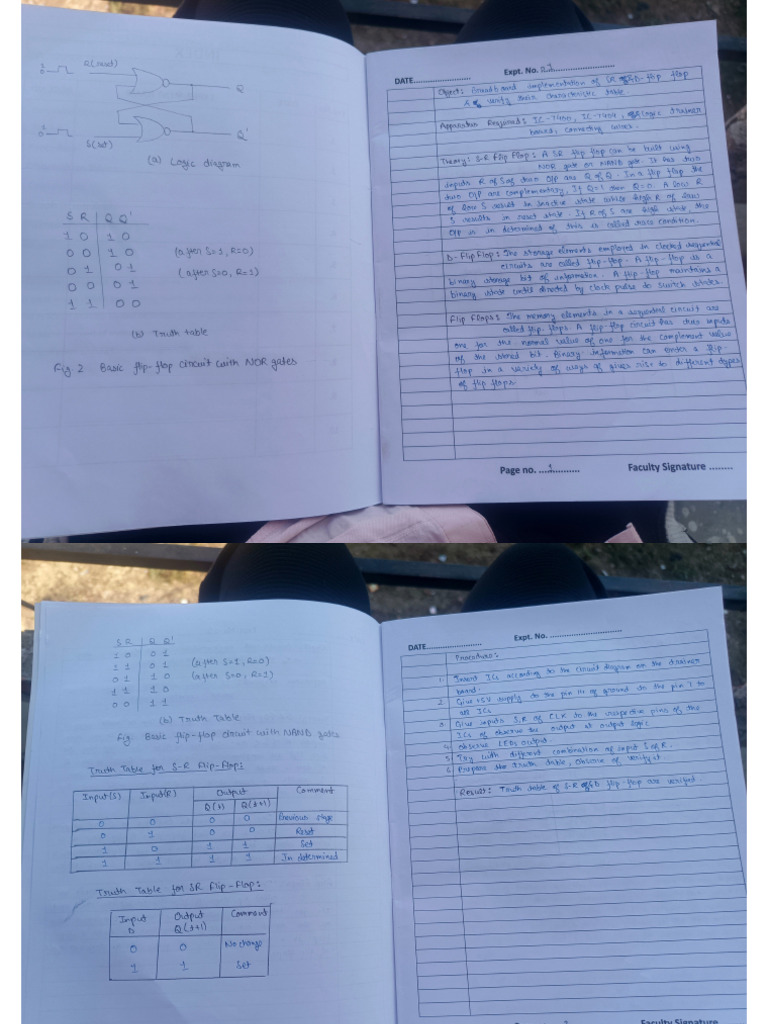 R(reset)
Q
Q'
S(set)
(a) Logic diagram
S R Q Q'
1 0 1 0
0 0 1 0 (after S=1, R=0)
0 1 0 1 (after S=0, R=1)
0 0 0 1
1 1 0 0
(b) Truth table
Fig 2 Basic flip-flop circuit with NOR gates
DATE........................ Expt. No.
Object: Breadboard implementation of SR & D-flip flop
& verify their characteristic table
Apparatus Required: IC-7400, IC-7404, Logic trainer
board, connecting wires.
Theory: S-R Flip Flop: A SR flip flop can be built using
NOR gate or NAND gate. It has two
inputs R & S & two O/P are Q & Q. In a flip flop the
two O/P are complementary, If Q=1 then Q=0. A low R
& low S result in inactive state while high R & low
S results in reset state. If R & S are high state the
O/P is in determined & this is called race condition.
D-Flip Flop: The storage elements employed in clocked sequential
circuits are called flip-flop. A flip-flop is a
binary storage bit of information. A flip flop maintains a
binary state until directed by clock pulse to switch states.
Flip Flops: The memory elements in a sequential circuit are
called flip flops. A flip flop circuit has two inputs
one for the normal value & one for the complement value
of the stored bit. Binary information can enter a flip-
flop in a variety of ways & gives rise to different types
of flip flops.
Page no. ....1.......... Faculty Signature ........
S R Q Q'
1 0 0 1
1 1 0 1 (after S=1, R=0)
0 1 1 0 (after S=0, R=1)
1 1 1 0
0 0 1 1
(b) Truth Table
Fig Basic flip-flop circuit with NAND gates
Truth Table for S-R Flip-Flop:
Input(S) Input(R) Output Comment
Q(t) Q(t+1)
0 0 0 0 Previous stage
0 1 0 0 Reset
1 0 1 1 Set
1 1 1 1 In determined
Truth Table for SR Flip-Flop:
Input Output Comment
D Q(t+1)
0 0 No change
1 1 Set
DATE........................ Expt. No. ............................
Procedure:
1. Insert ICs according to the circuit diagram on the trainer
board.
2. Give +5V supply to the pin 14 & ground to the pin 7 to
all ICs
3. Give inputs S,R & CLK to the respective pins of the
ICs & observe the output at output logic
4. observe LEDs output.
5. Try with different combination of input S & R.
6. Prepare the truth table, observe & verify it
Result: Truth table of S-R & D flip-flop are verified.
Faculty Signature